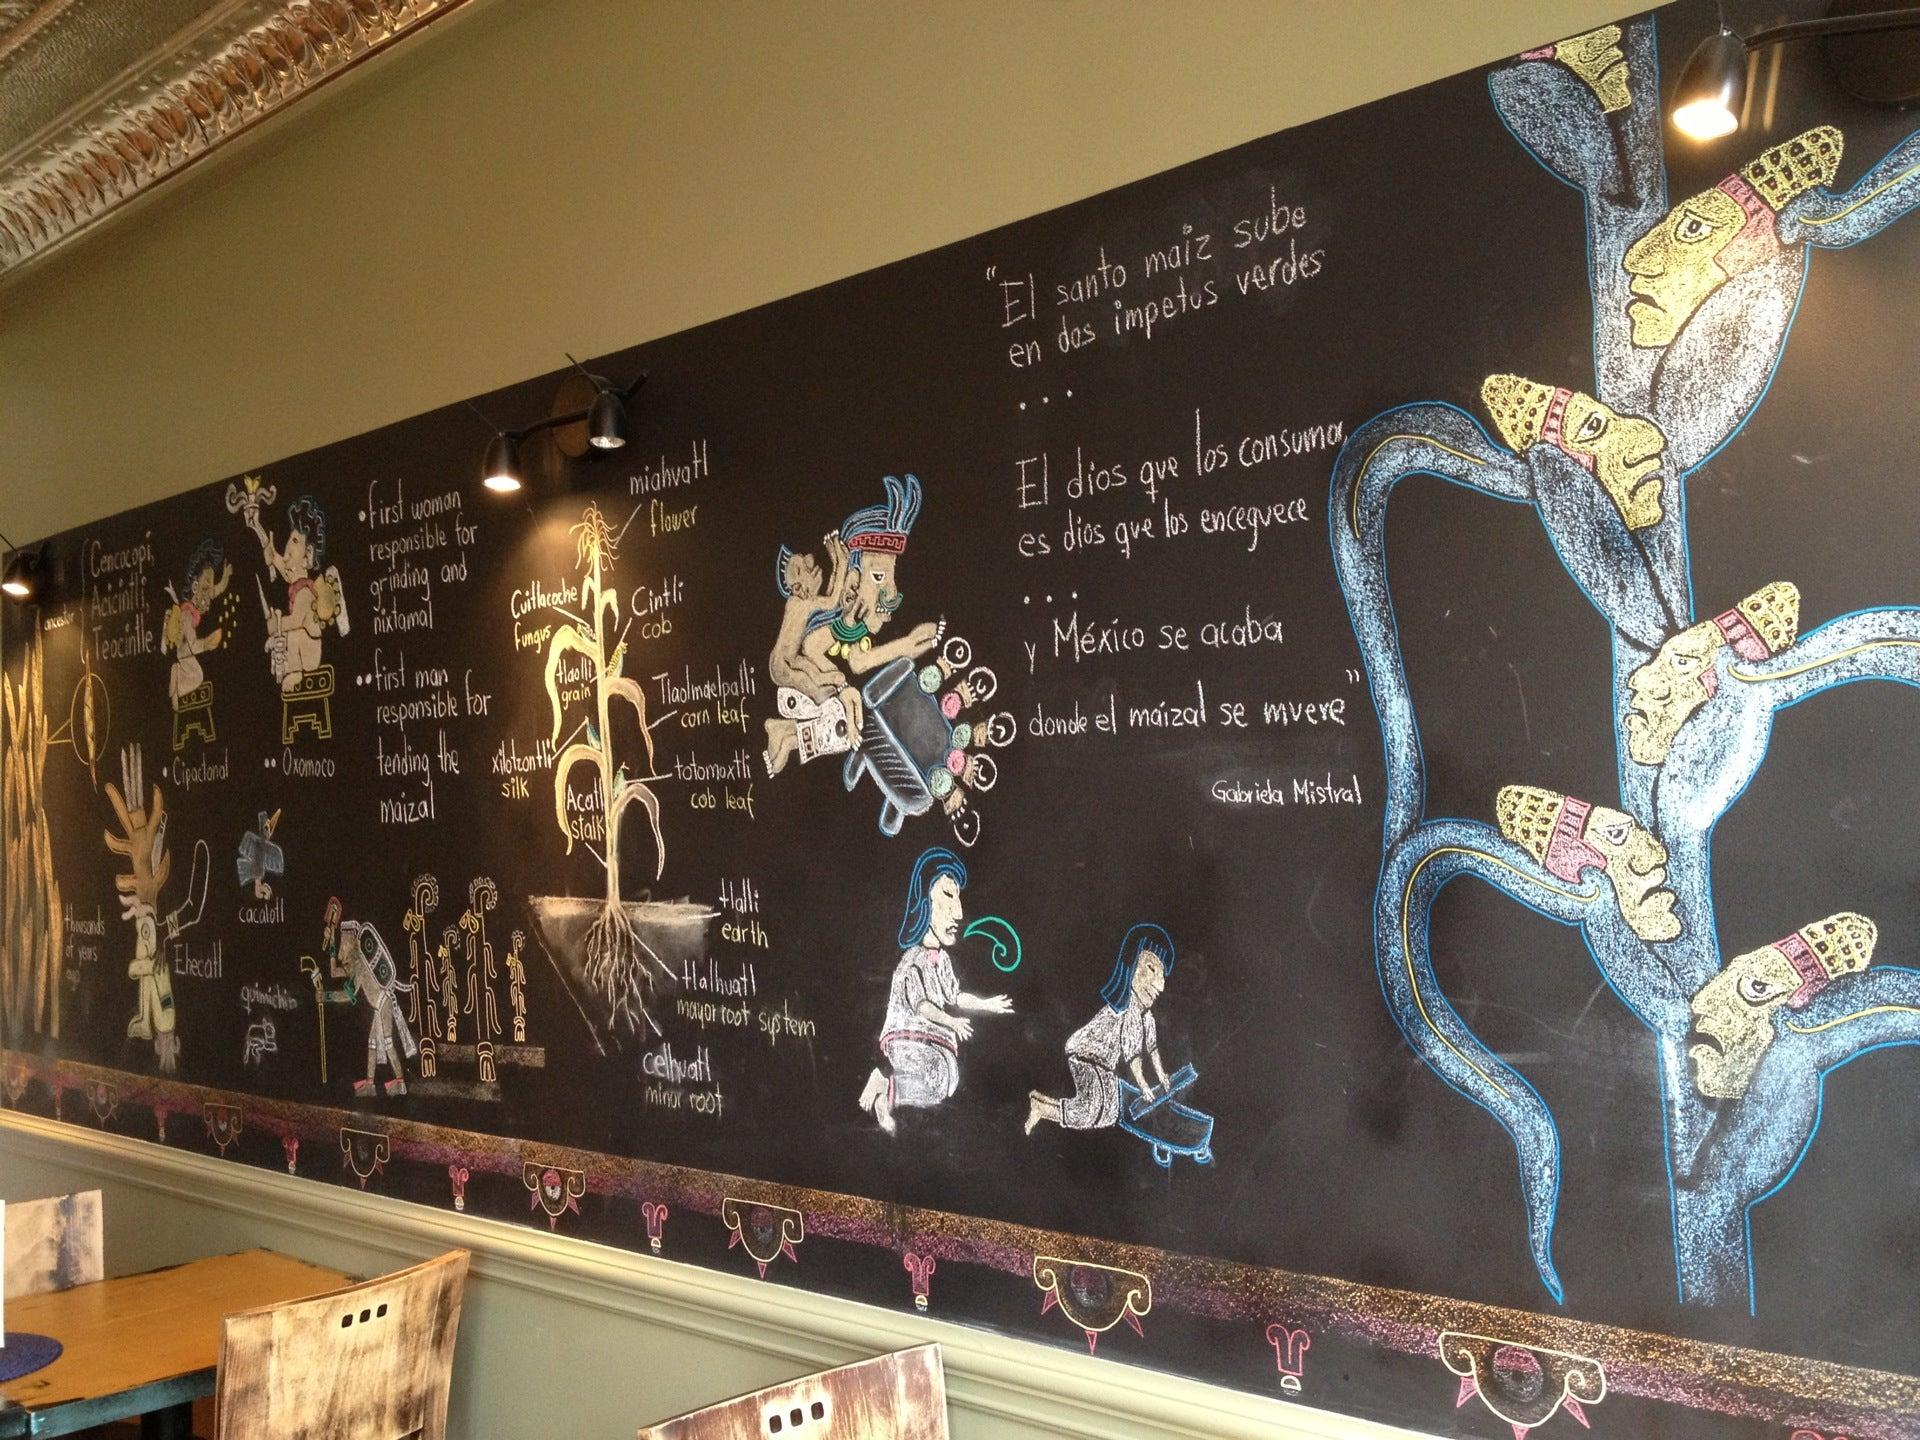 ancestor
Cencocopi,
Acicintli,
Teocintle.
thousands
of years
ago
• Cipactonal
•• Oxomoco
• first woman
responsible for
grinding and
nixtamal
•• first man
responsible for
tending the
maizal
Ehecatl
cacalotl
quimichin
miahuatl
flower
Cuitlacoche
fungus
Cintli
cob
tlaolli
grain
Tlaolmaelpalli
corn leaf
xilotzontli
silk
totomoxtli
cob leaf
Acatl
stalk
tlalli
earth
tlalhuatl
mayor root system
celhuatl
minor root
"El santo maiz sube
en dos impetus verdes
...
El dios que los consuma,
es dios que los enceguece
...
y México se acaba
donde el maízal se muere"
Gabriela Mistral